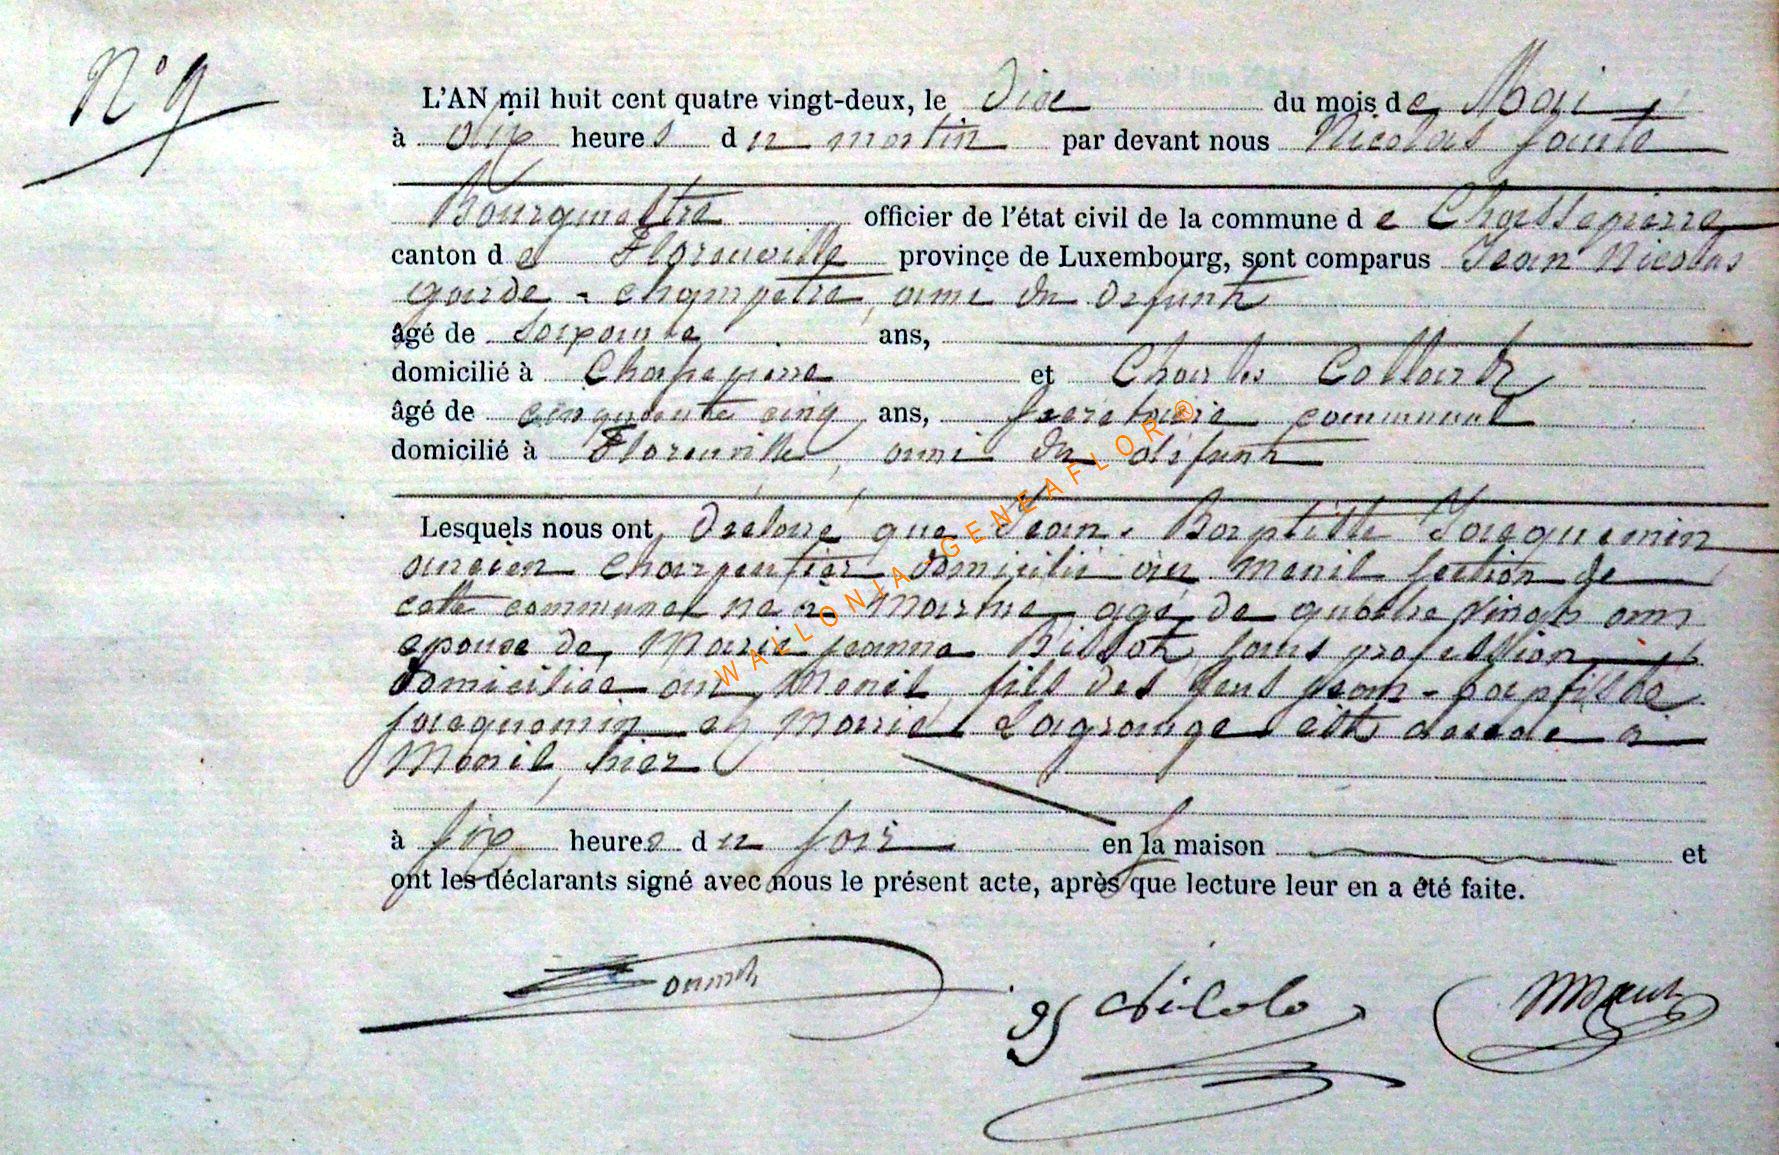 N° 9
L'AN mil huit cent quatre vingt-deux, le dix du mois de Mai
à dix heures du matin par devant nous Nicolas
Bourgmestre officier de l'état civil de la commune de Chassepierre
canton de Florenville province de Luxembourg, sont comparus Jean Nicolas
garde-champetre, ami du defunt
âgé de soixante ans,
domicilié à Chassepierre et Charles Collart
âgé de cinquante cinq ans, secretaire communal
domicilié à Florenville, ami du défunt
Lesquels nous ont déclaré que Jean-Baptiste Jacquemin
ancien charpentier domicilié au Menil section de
cette commune né a agé de quatre vingt ans
epoux de Marie jeanne sans profession
domiciliée au Menil, fils des feus jean-baptiste
jacquemin et Marie Lagrange est decedé à
Menil, hier
à six heures du soir en la maison et
ont les déclarants signé avec nous le présent acte, après que lecture leur en a été faite.
WALLONIA-GENEAFLOR®